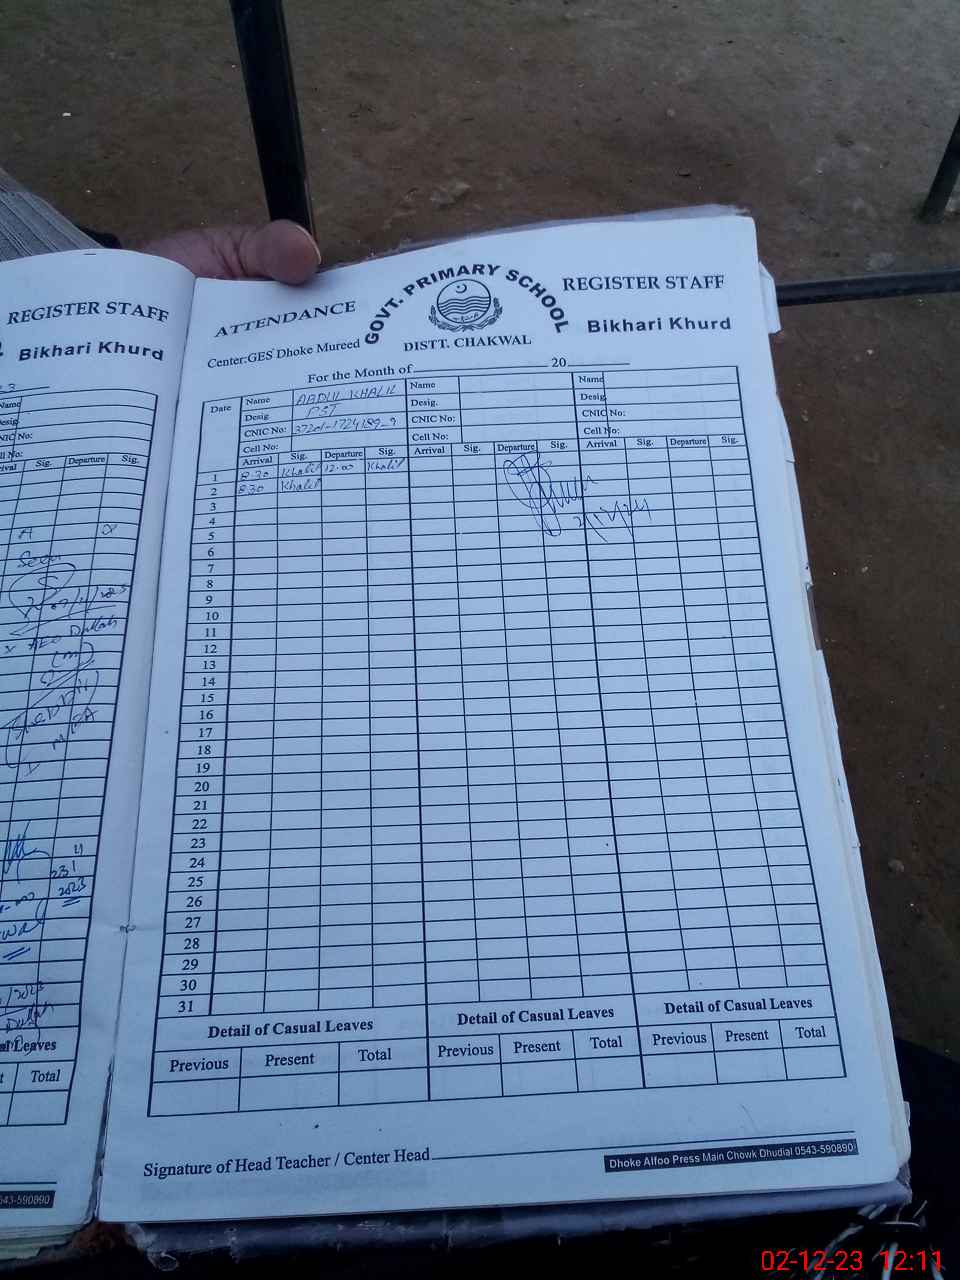 REGISTER STAFF
Bikhari Khurd
Name
Desig
CNIC No:
Cell No:
Arrival Sig. Departure Sig.
A
Seen
AEO
2023
Leaves
Total
543-590890
ATTENDANCE
GOVT. PRIMARY SCHOOL
REGISTER STAFF
Center:GES Dhoke Mureed
DISTT. CHAKWAL
Bikhari Khurd
For the Month of 20
Date
Name ABDUL KHALIL
Desig. PST
CNIC No: 37201-1724189-9
Cell No:
Name
Desig.
CNIC No:
Cell No:
Name
Desig.
CNIC No:
Cell No:
Arrival Sig. Departure Sig. Arrival Sig. Departure Sig. Arrival Sig. Departure Sig.
1 8.30 Khalil 12.00 Khalil
2 8.30 Khalil
3
4
5
6
7
8
9
10
11
12
13
14
15
16
17
18
19
20
21
22
23
24
25
26
27
28
29
30
31
Detail of Casual Leaves Detail of Casual Leaves Detail of Casual Leaves
Previous Present Total Previous Present Total Previous Present Total
Signature of Head Teacher / Center Head
Dhoke Alfoo Press Main Chowk Dhudial 0543-590890
02-12-23 12:11